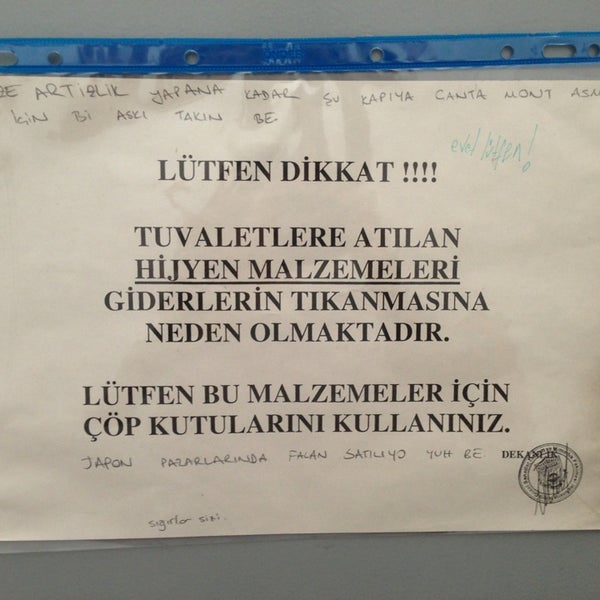 ZE ARTİZLİK YAPANA KADAR ŞU KAPIYA ÇANTA MONT ASM
İÇİN Bİ ASKI TAKIN BE.
evet lütfen!
LÜTFEN DİKKAT !!!!
TUVALETLERE ATILAN
HİJYEN MALZEMELERİ
GİDERLERİN TIKANMASINA
NEDEN OLMAKTADIR.
LÜTFEN BU MALZEMELER İÇİN
ÇÖP KUTULARINI KULLANINIZ.
JAPON PAZARLARINDA FALAN SATILIYO YUH BE.
DEKANLIK
sığırlar sizi.